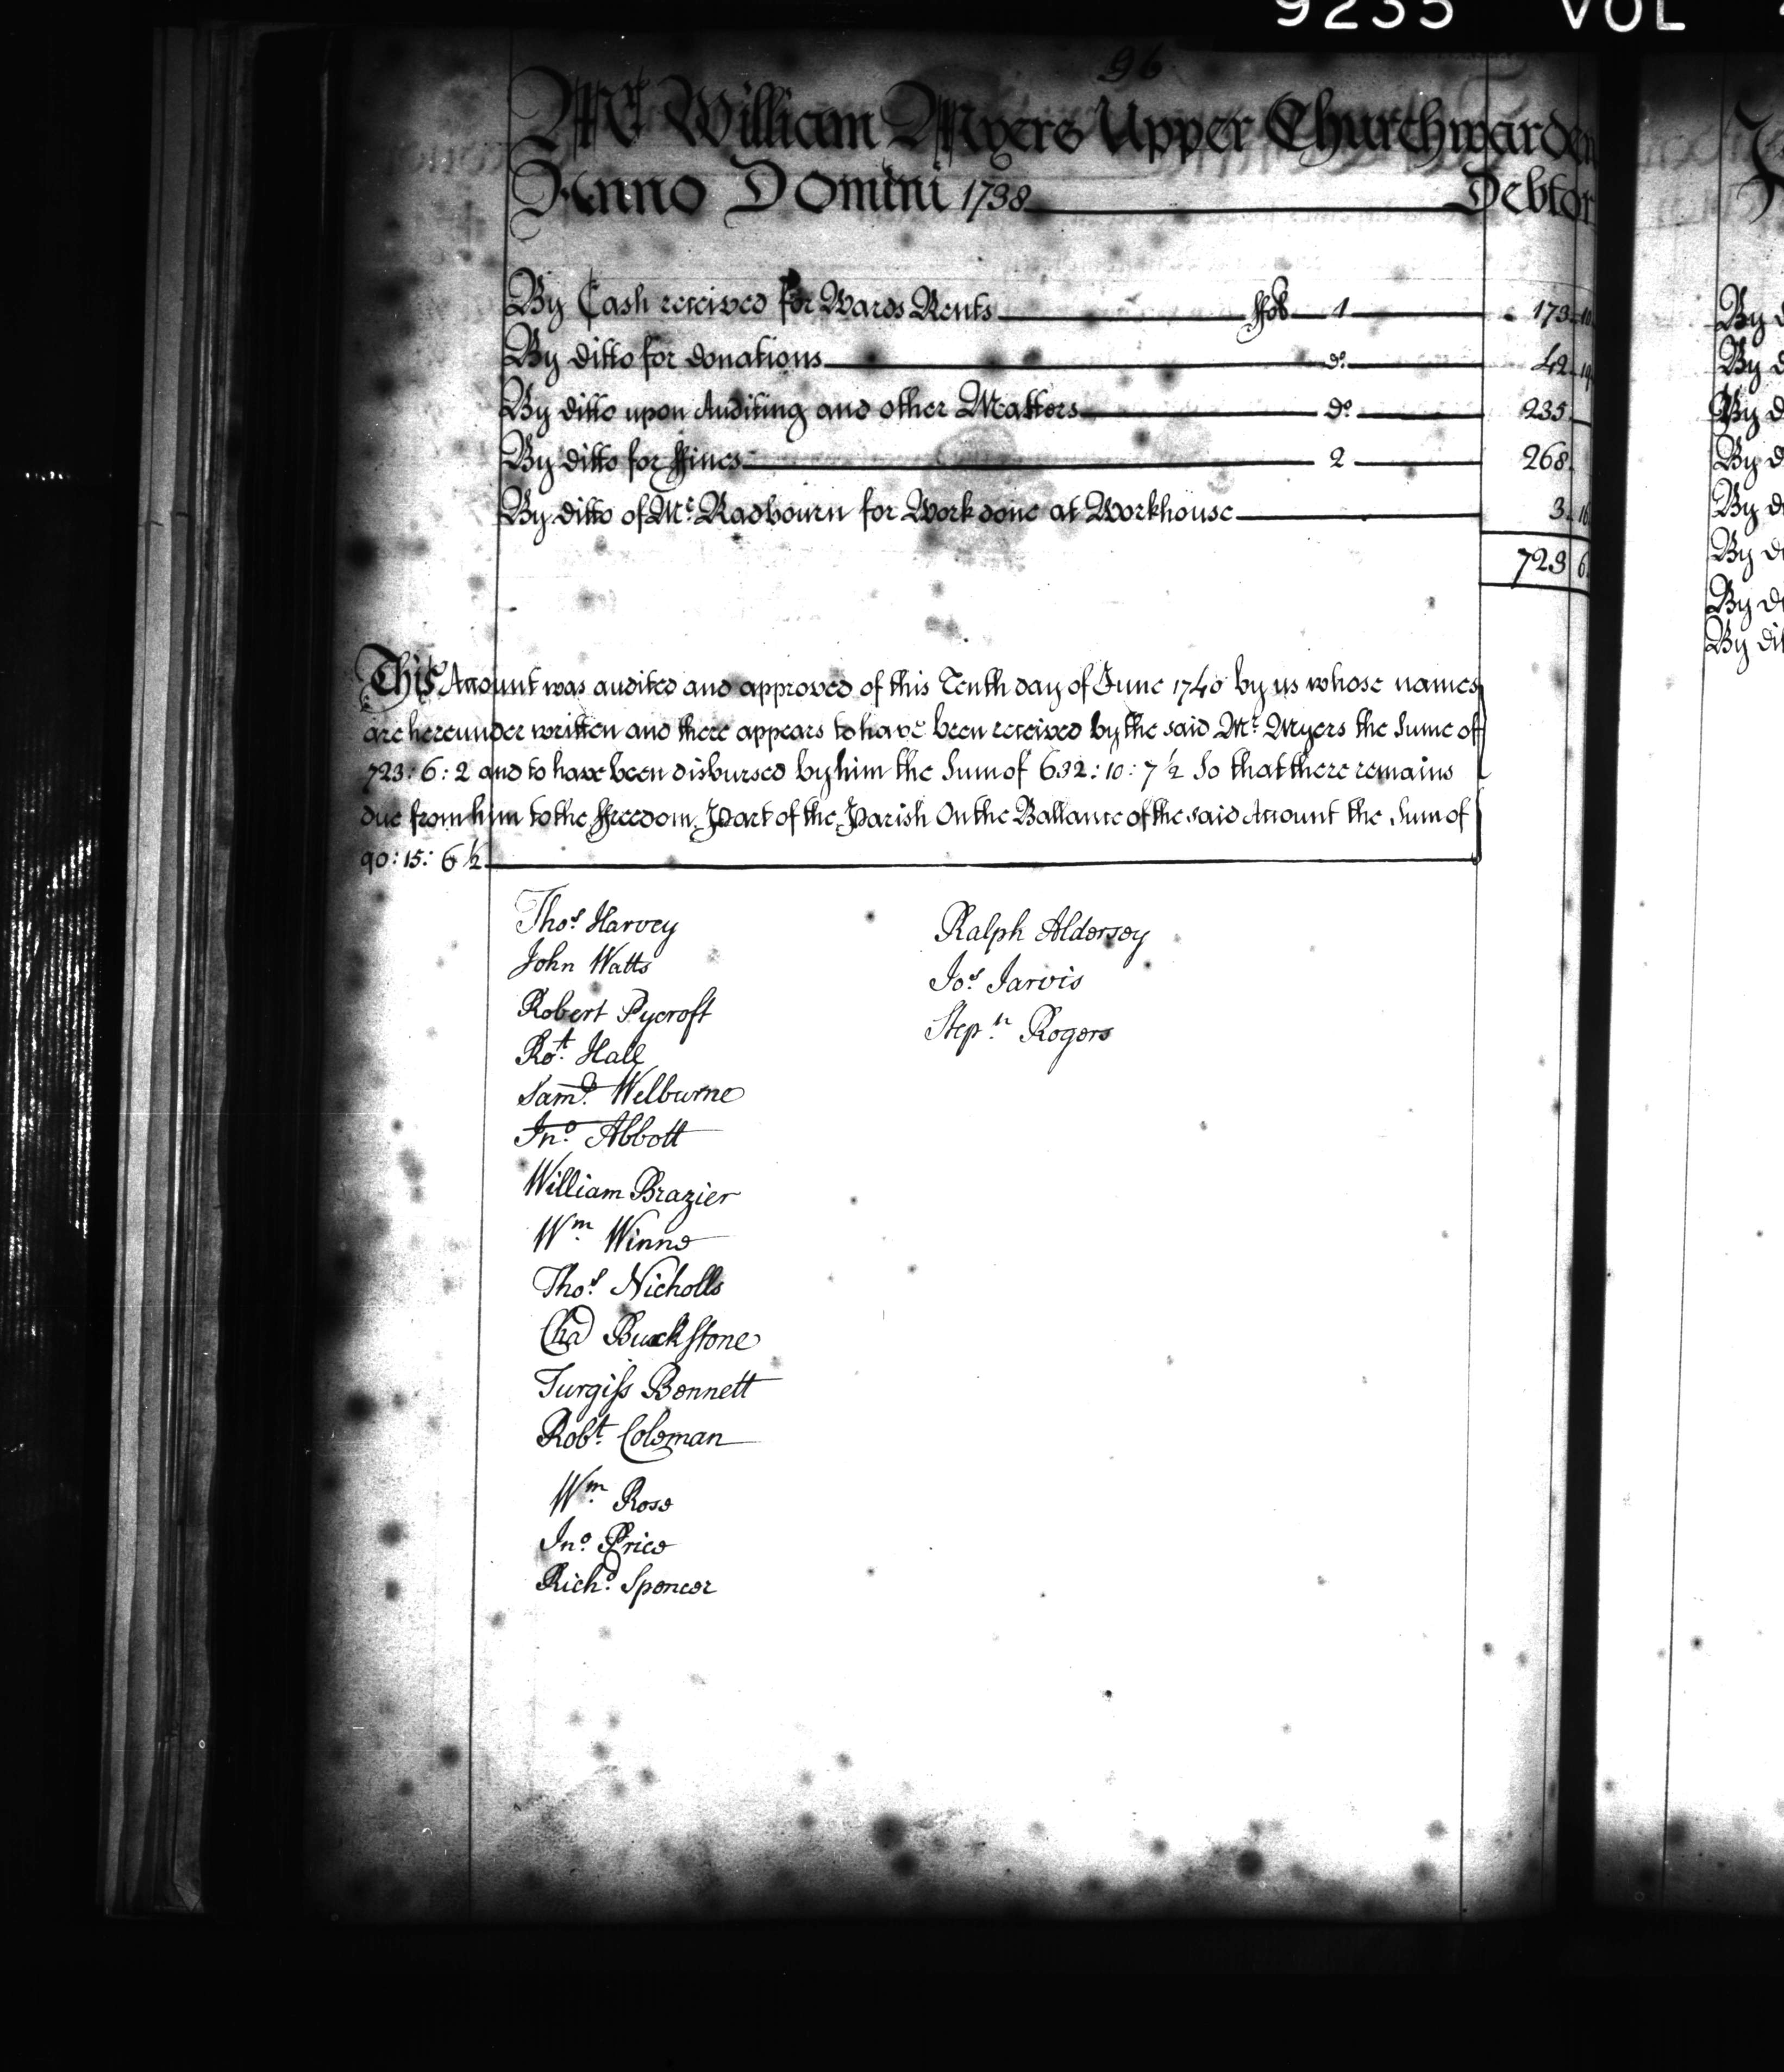 9235 VOL
96
Mr. William Myers Upper Churchwarden
Anno Domini 1738 Debtor
By Cash received for Wards Rents ffol 1 173 10
By ditto for donations do. 42 19
By ditto upon Auditing and other Matters do. 235
By ditto for ffines 2 268
By ditto of Mr. Radbourn for Work done at Workhouse 3 16
723 6
This Account was audited and approved of this Tenth day of June 1740 by us whose names
are hereunder written and there appears to have been received by the said Mr. Myers the Sume of
723: 6: 2 and to have been disbursed by him the Sum of 632: 10: 7 1/2 So that there remains
due from him to the ffreedom Part of the Parish On the Ballance of the said Account the Sum of
90: 15: 6 1/2
Thos. Harvey
John Watts
Robert Pycroft
Rot. Hall
Saml. Welburne
Jno. Abbott
William Brazier
Wm. Winne
Thos. Nicholls
Cha Buckstone
Turgiss Bennett
Robt. Coleman
Wm. Rose
Jno. Price
Richd. Spencer
Ralph Aldersey
Jos. Jarvis
Stepn. Rogers
By d
By d
By d
By d
By d
By d
By d
By dit